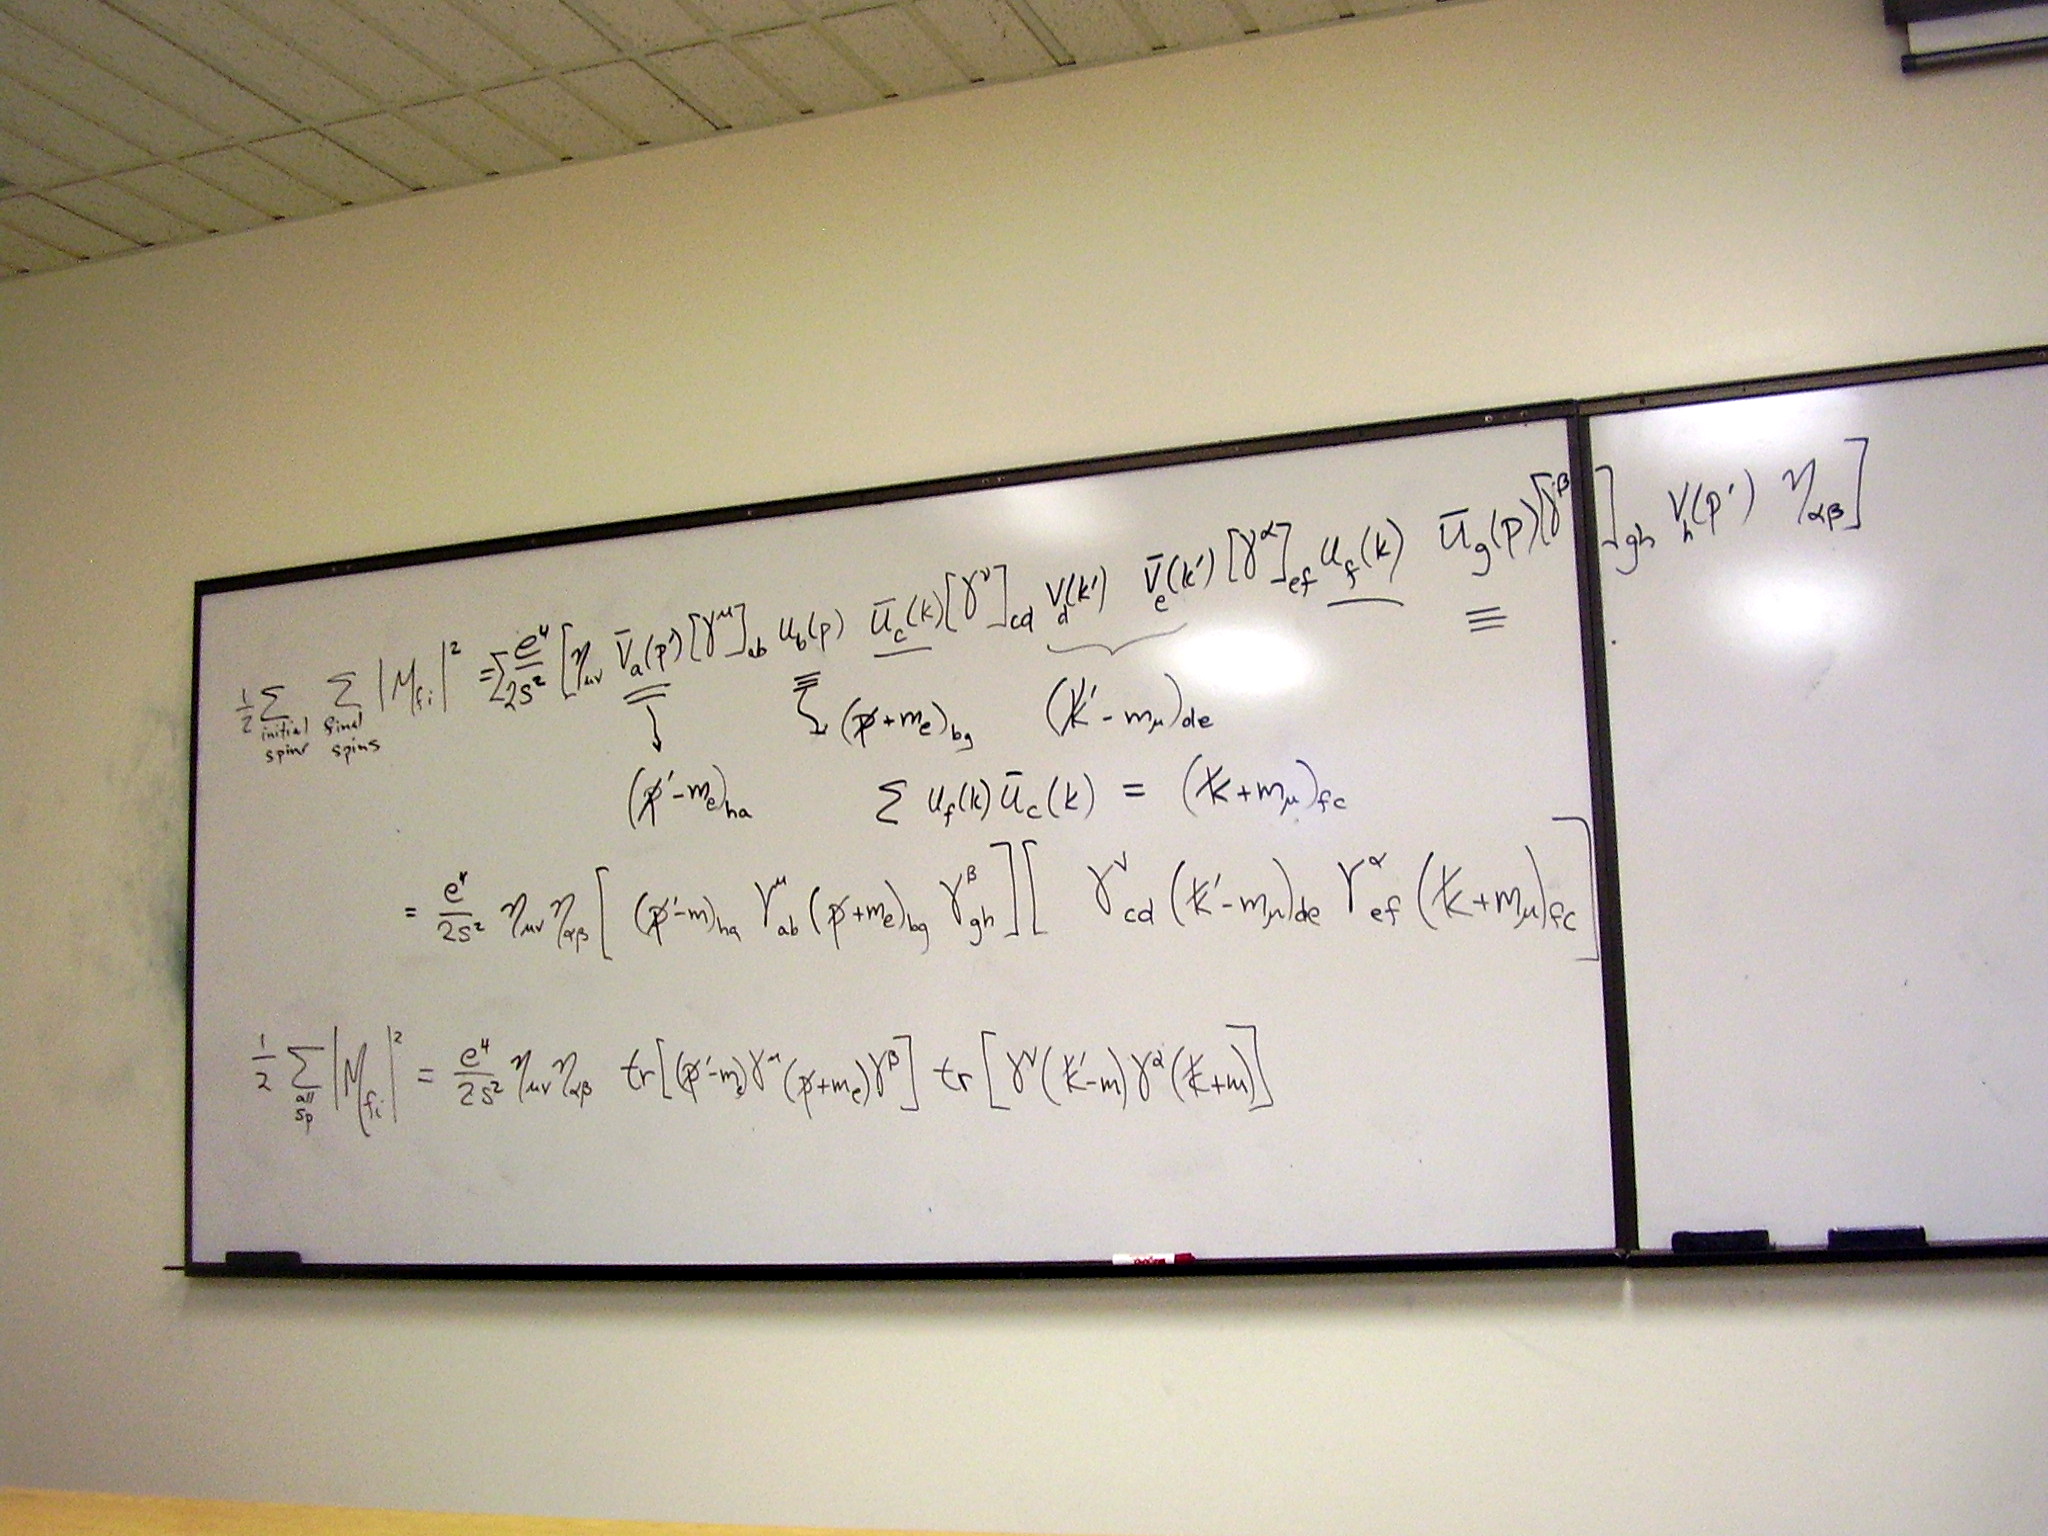 ½ Σ_{initial spins} Σ_{final spins} |M_{fi}|² = Σ e⁴/2s² [η_{μν} v̄_a(p′) [γ^μ]_{ab} u_b(p) ū_c(k) [γ^ν]_{cd} v_d(k′) v̄_e(k′) [γ^α]_{ef} u_f(k) ū_g(p) [γ^β]_{gh} v_h(p′) η_{αβ}]
(p̸ + m_e)_{bg} (k̸′ - m_μ)_{de}
(p̸′ - m_e)_{ha} Σ u_f(k) ū_c(k) = (k̸ + m_μ)_{fc}
= e⁴/2s² η_{μν} η_{αβ} [(p̸′ - m)_{ha} γ^μ_{ab} (p̸ + m_e)_{bg} γ^β_{gh}] [γ^ν_{cd} (k̸′ - m_μ)_{de} γ^α_{ef} (k̸ + m_μ)_{fc}]
½ Σ_{all sp} |M_{fi}|² = e⁴/2s² η_{μν} η_{αβ} tr[(p̸′ - m_e) γ^μ (p̸ + m_e) γ^β] tr[γ^ν (k̸′ - m) γ^α (k̸ + m)]